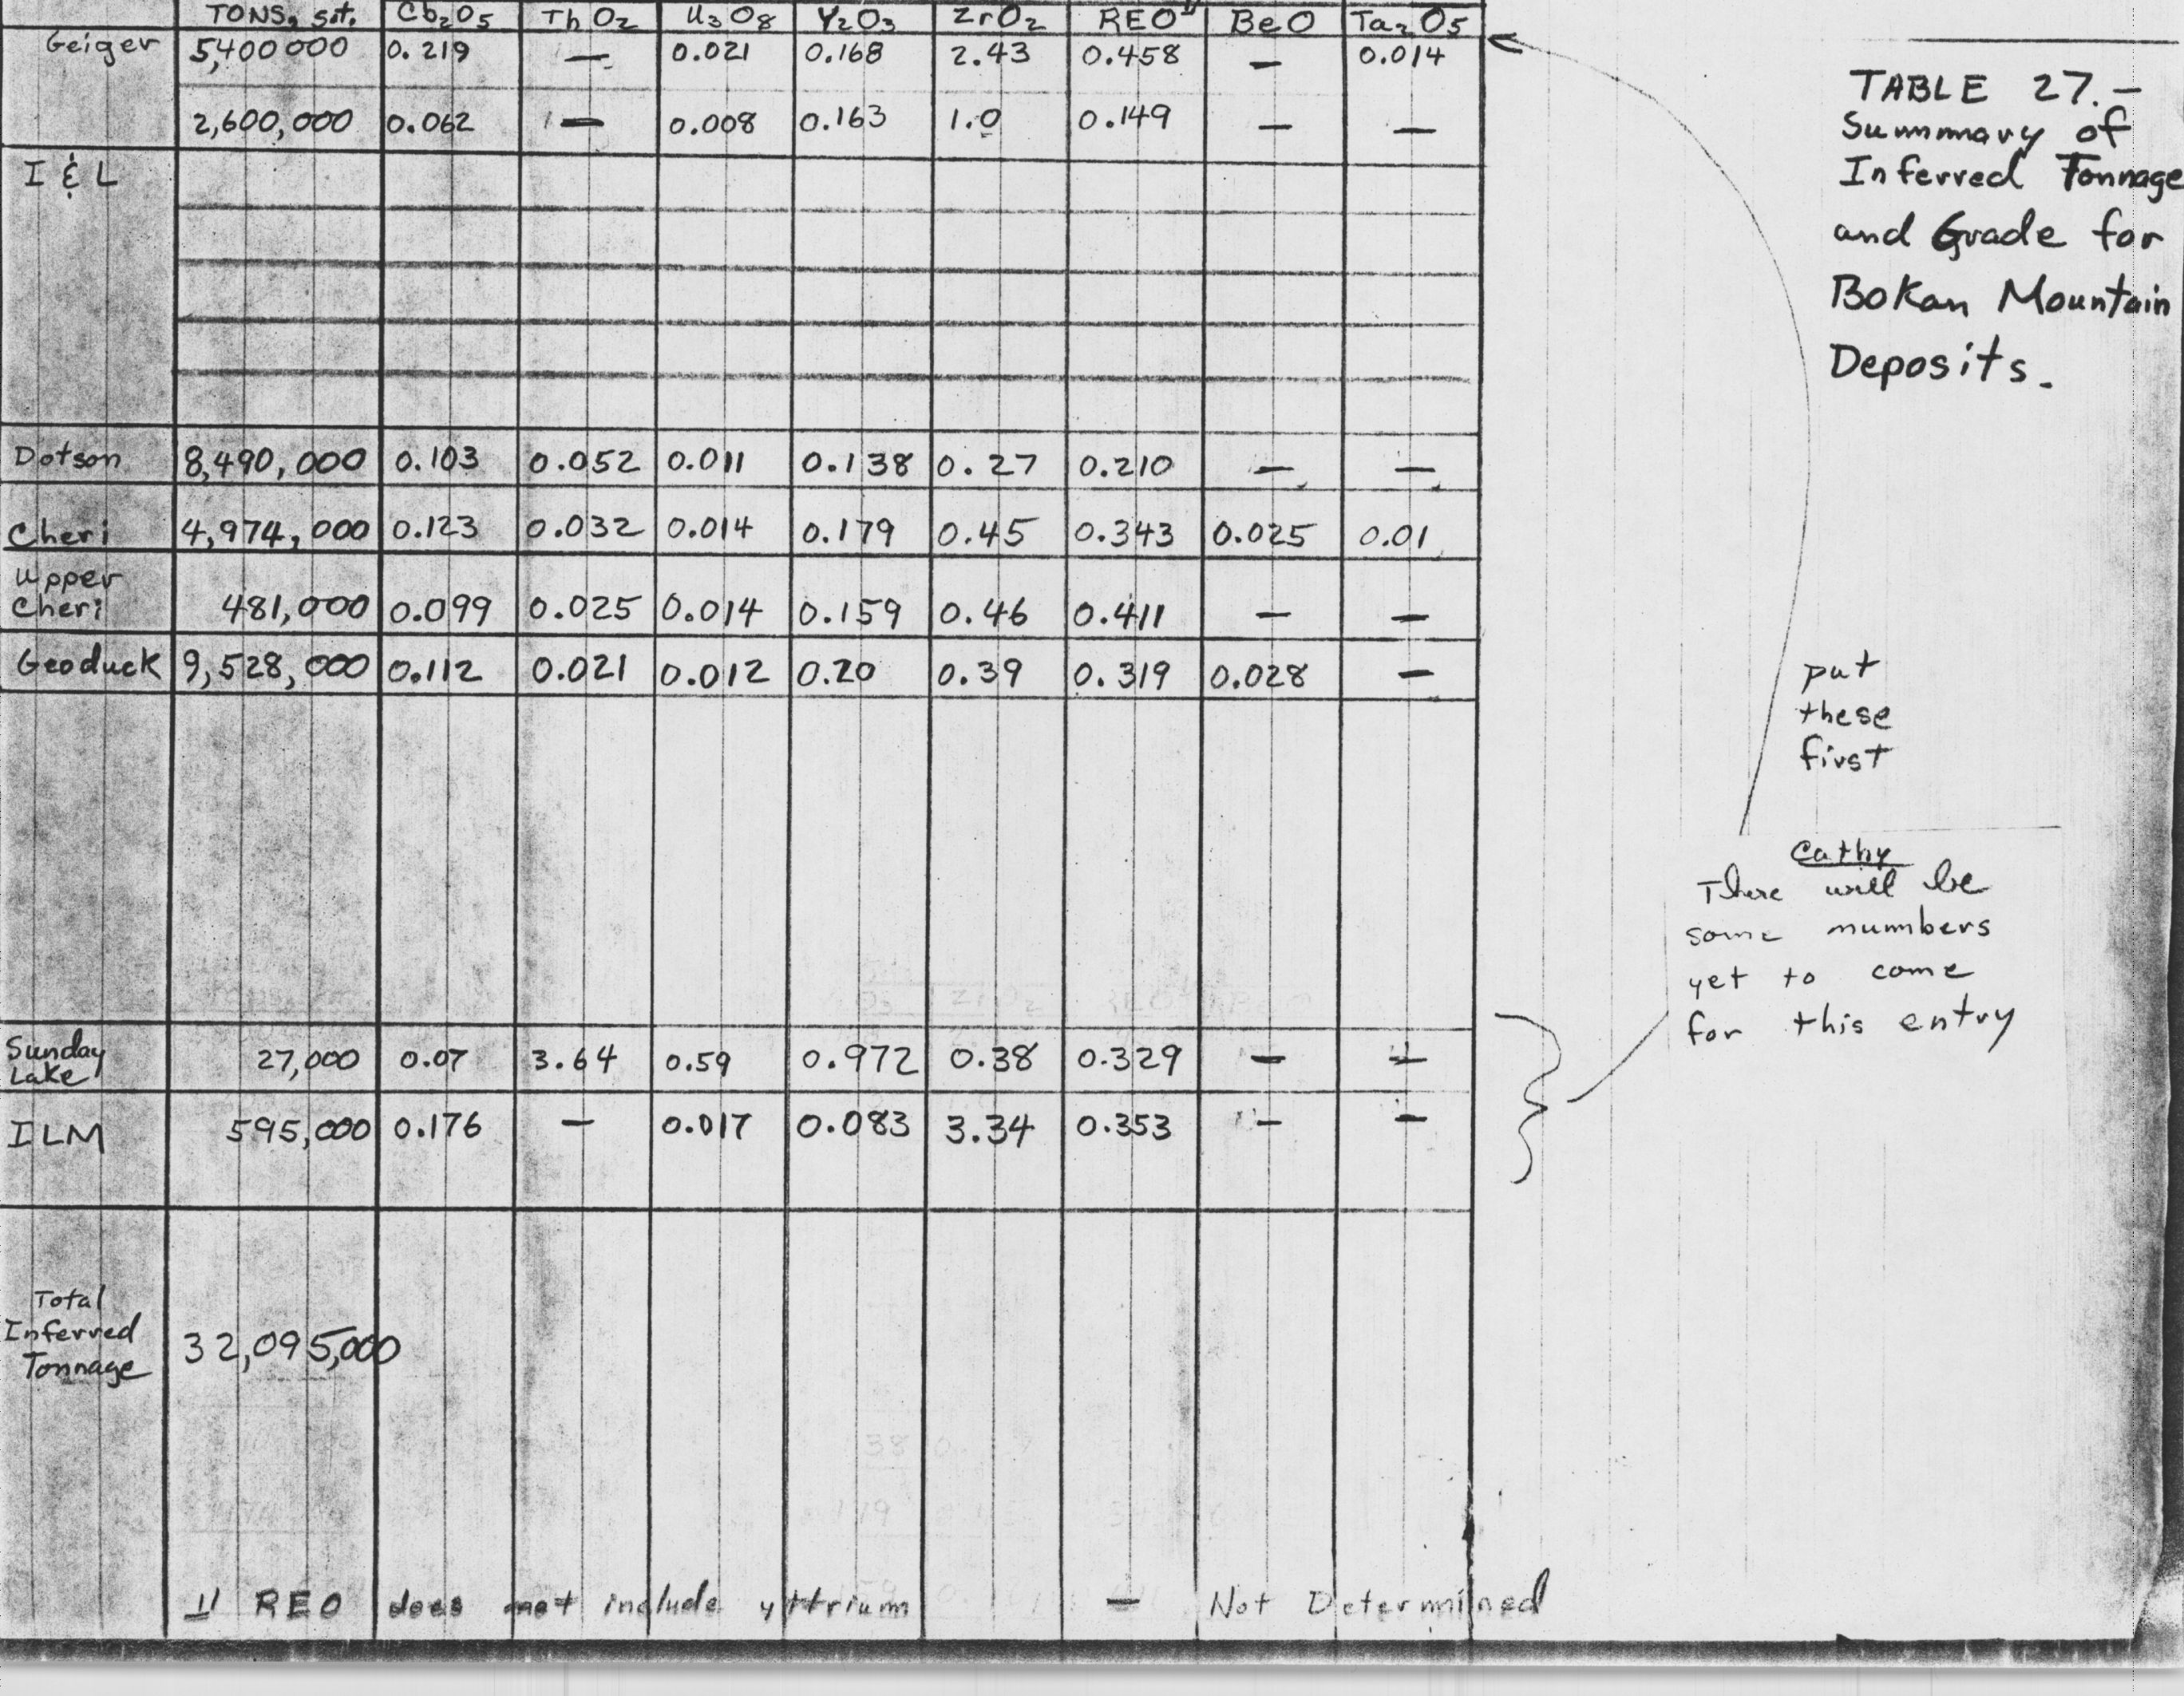 TONS, s.t. Cb₂O₅ ThO₂ U₃O₈ Y₂O₃ ZrO₂ REO 1/ BeO Ta₂O₅
Geiger 5,400 000 0.219 — 0.021 0.168 2.43 0.458 — 0.014
2,600,000 0.062 — 0.008 0.163 1.0 0.149 — —
I & L
Dotson 8,490,000 0.103 0.052 0.011 0.138 0.27 0.210 — —
Cheri 4,974,000 0.123 0.032 0.014 0.179 0.45 0.343 0.025 0.01
Upper
Cheri 481,000 0.099 0.025 0.014 0.159 0.46 0.411 — —
Geoduck 9,528,000 0.112 0.021 0.012 0.20 0.39 0.319 0.028 —
Sunday
Lake 27,000 0.07 3.64 0.59 0.972 0.38 0.329 — —
ILM 595,000 0.176 — 0.017 0.083 3.34 0.353 — —
Total
Inferred
Tonnage 32,095,000
1/ REO does not include yttrium — Not Determined
TABLE 27.—
Summary of
Inferred Tonnage
and Grade for
Bokan Mountain
Deposits.
put
these
first
Cathy
There will be
some numbers
yet to come
for this entry